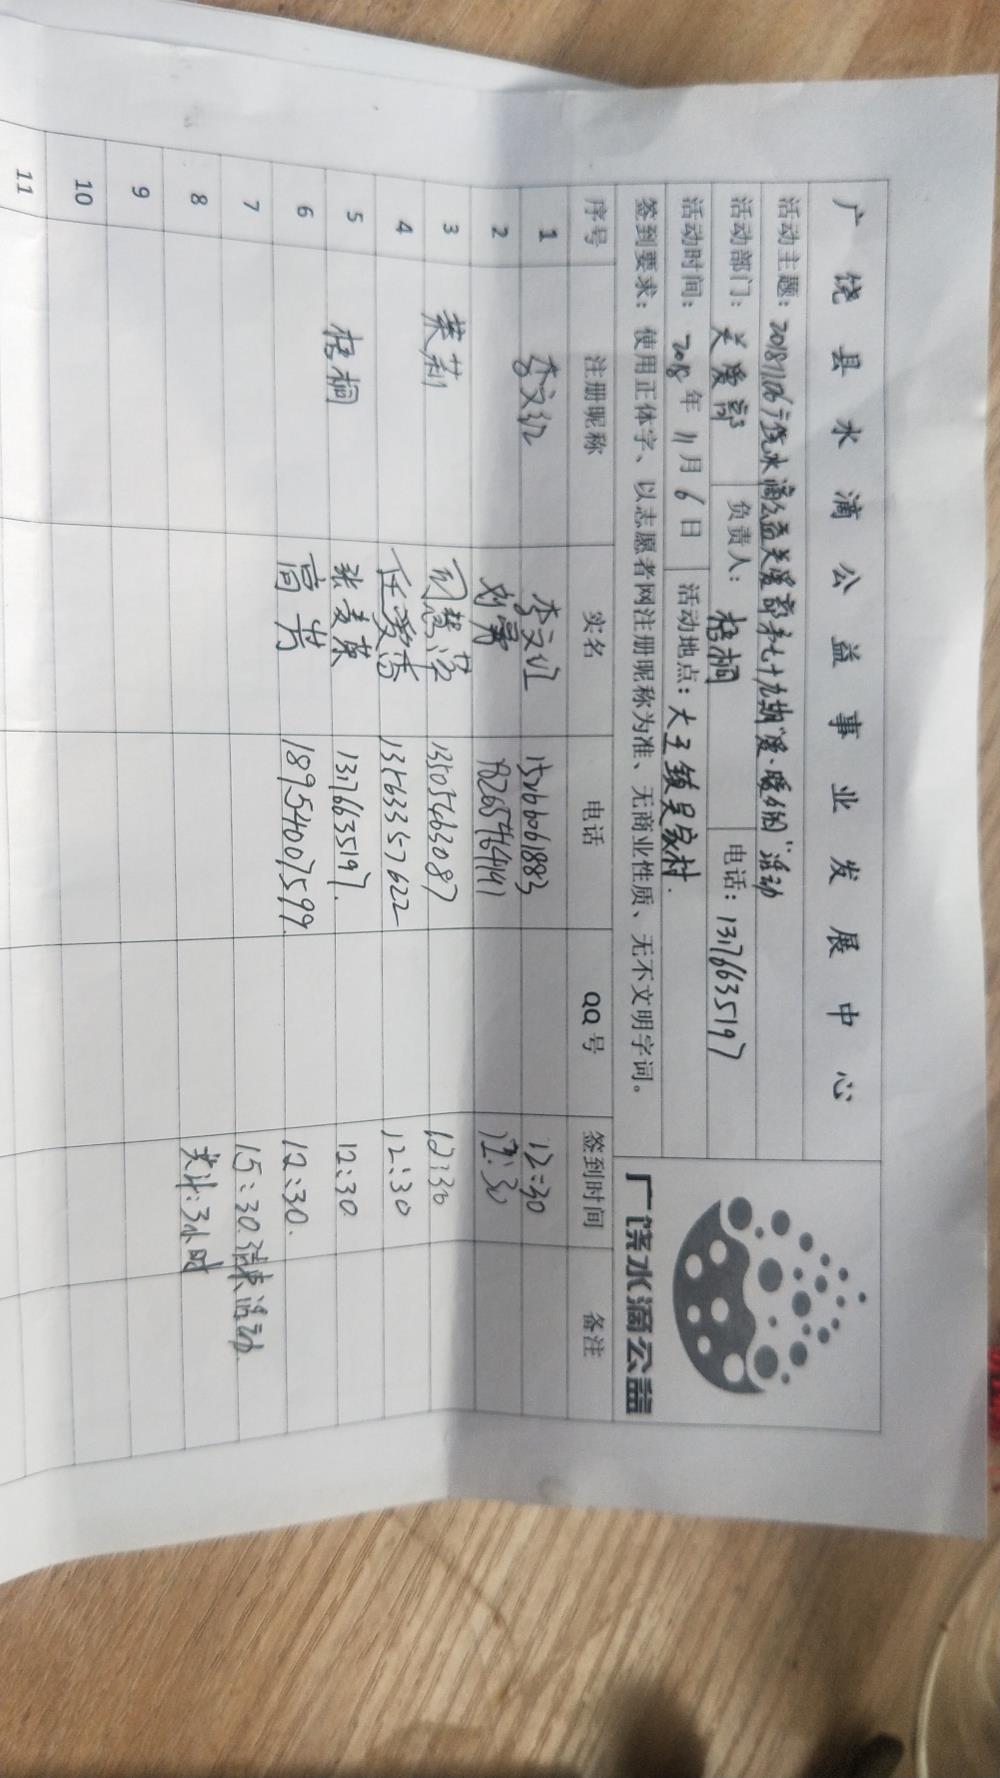 广饶县水滴公益事业发展中心
活动主题：20181106广饶水滴公益关爱部第七十九期"爱·暖你"活动
活动部门：关爱部 负责人：梧桐 电话：13176635197
活动时间：2018年11月6日 活动地点：大王镇吴家村.
签到要求：使用正体字、以志愿者网注册昵称为准、无商业性质、无不文明字词。
广饶水滴公益
序号 注册昵称 实名 电话 QQ号 签到时间 备注
1 李文红 李文红 15266061883 12:30
2 刘勇 12:30
3 茉莉 13505463087 12:30
4 任爱香 13563357622 12:30
5 梧桐 张麦英 13176635197. 12:30
6 高芳 18954007599. 12:30.
7 15:30.结束活动.
8 共计:3小时
9
10
11